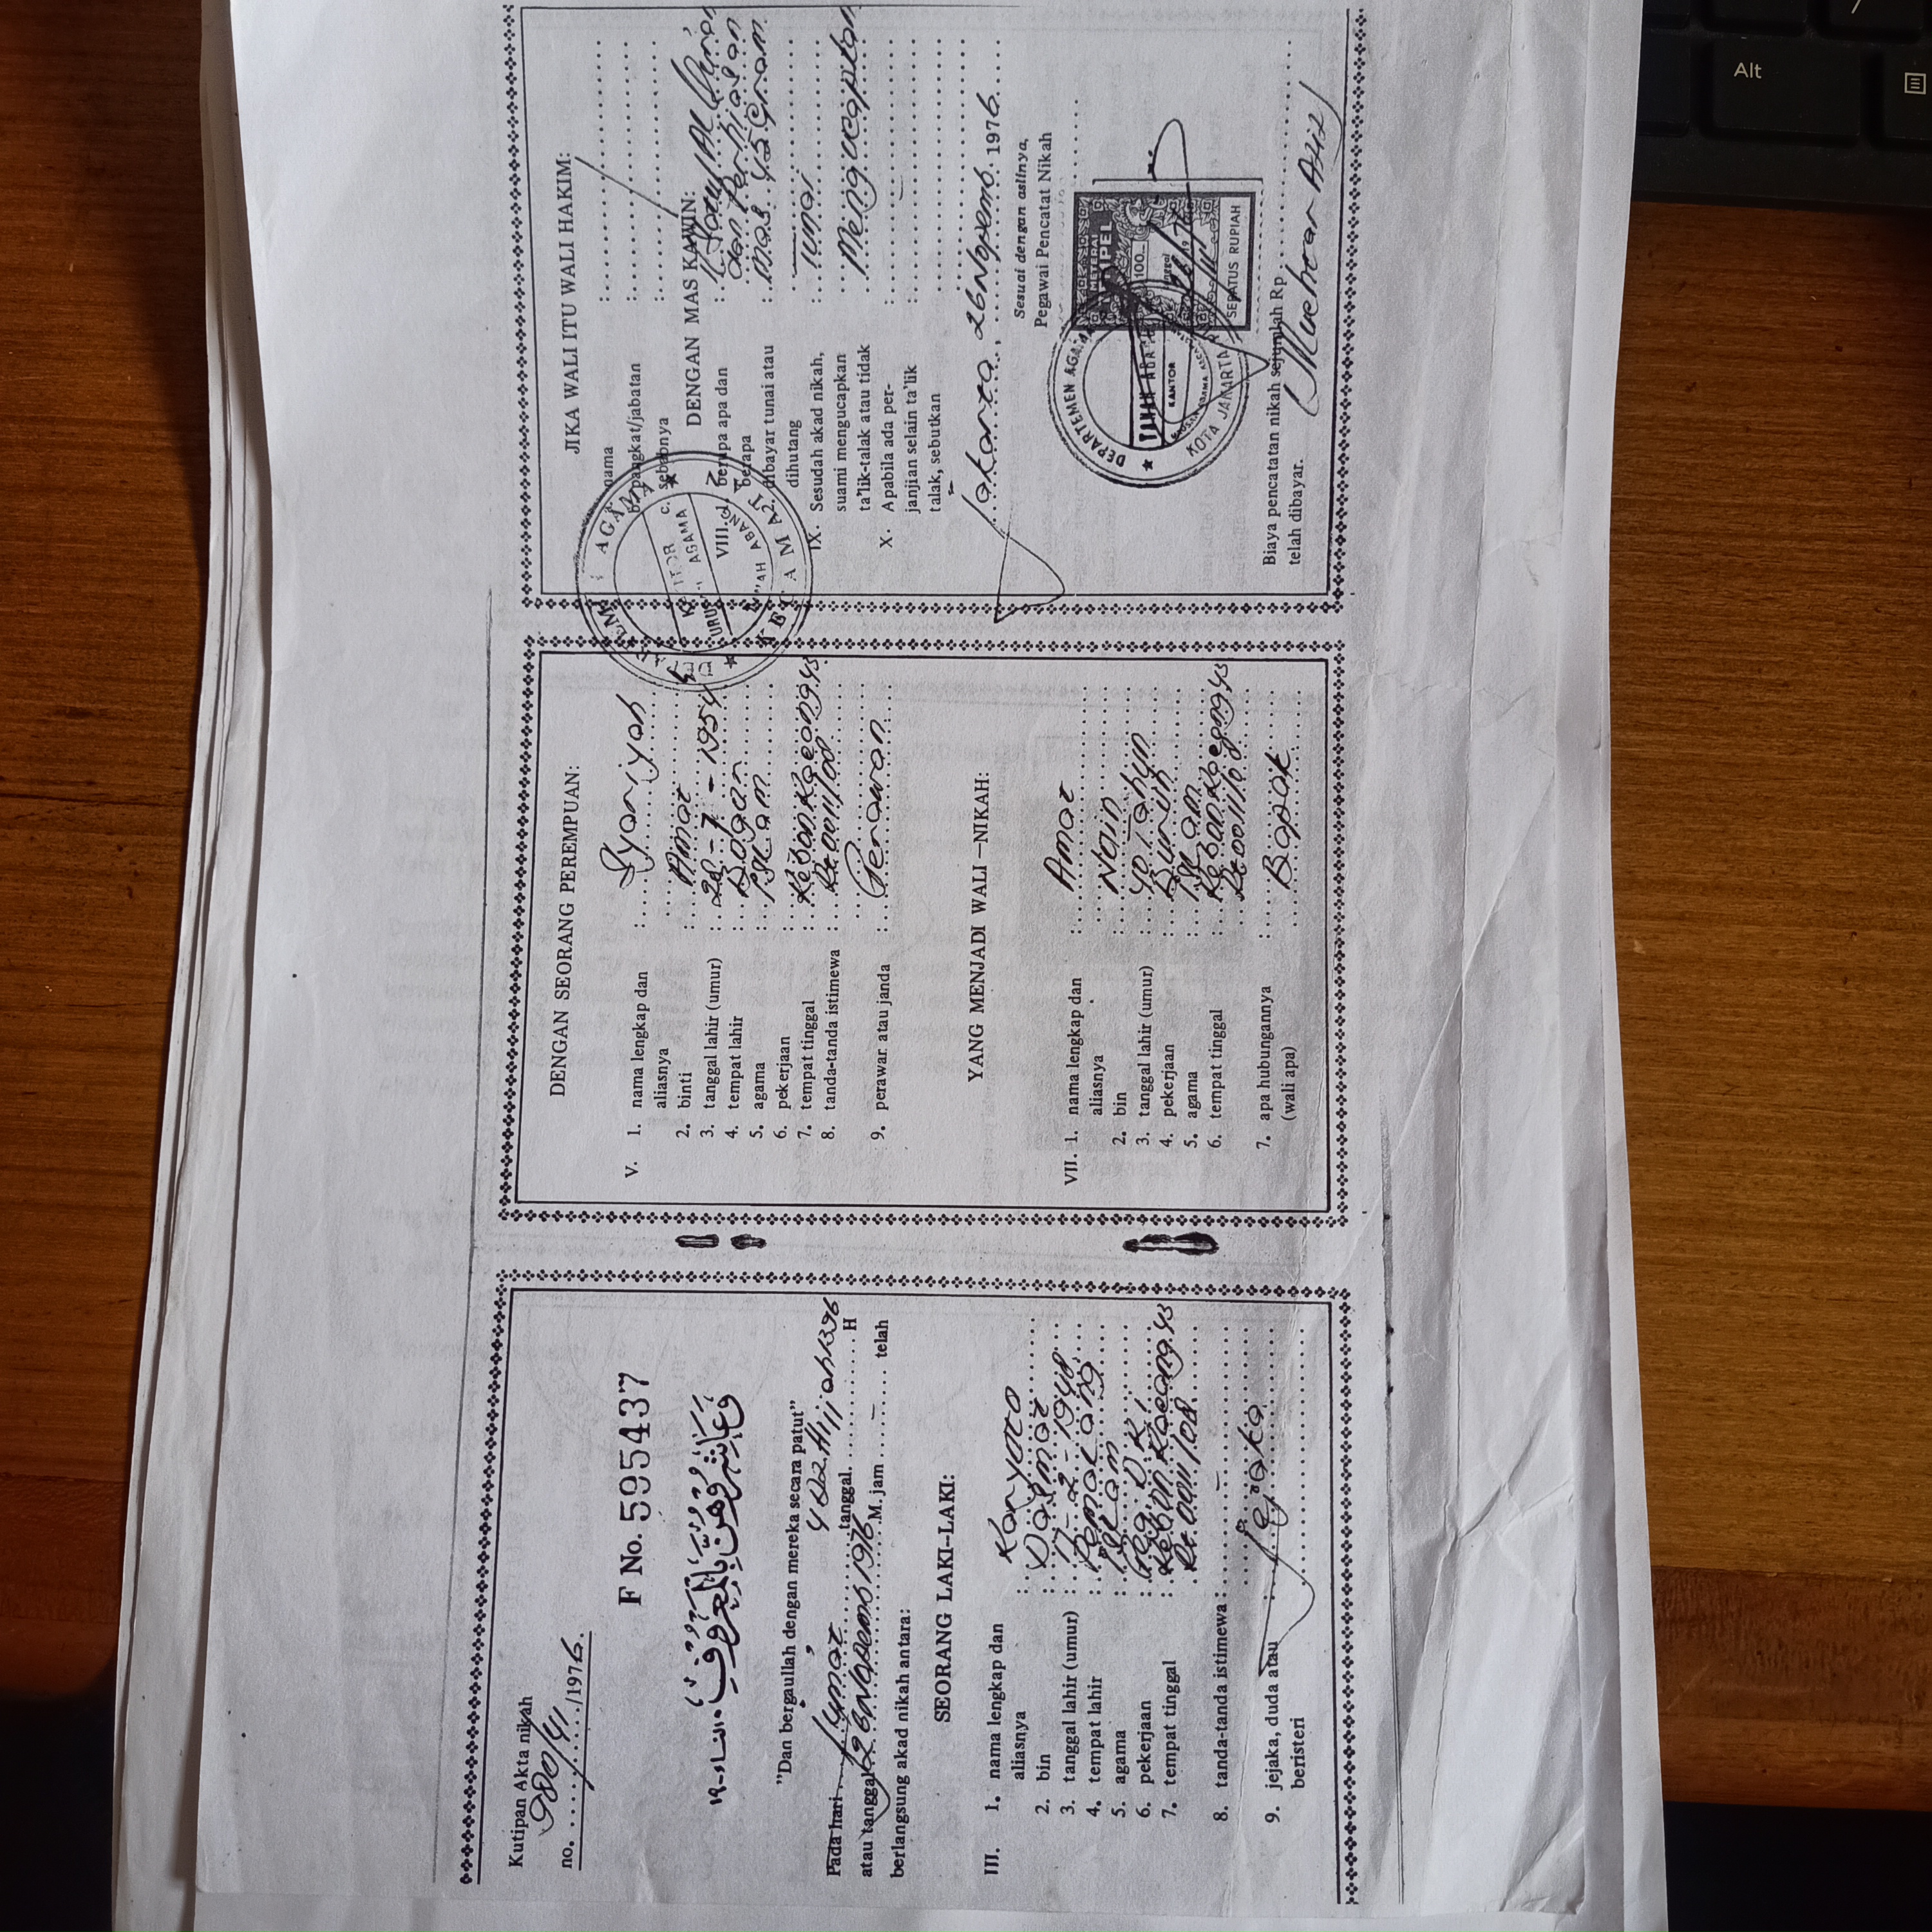 Kutipan Akta nikah
no. 980/41/1976.
F No. 595437
وَعَاشِرُوْهُنَّ بِالْمَعْرُوْفِ، النساء-١٩
"Dan bergaullah dengan mereka secara patut"
Pada hari Jumat tanggal 4 Dz Hijjah 1396 H
atau tanggal 26 Nopemb 1976 M. jam – telah
berlangsung akad nikah antara:
SEORANG LAKI–LAKI:
III. 1. nama lengkap dan : Karyoto
aliasnya
2. bin : Dasmat
3. tanggal lahir (umur) : 17-2-1948
4. tempat lahir : Pemalang
5. agama : Islam
6. pekerjaan :
7. tempat tinggal : Kebon Kacang 43
Rt 0011/08
8. tanda-tanda istimewa : –
9. jejaka, duda atau : Jejaka
beristeri
DENGAN SEORANG PEREMPUAN:
V. 1. nama lengkap dan : Iyoniyah
aliasnya
2. binti : Amat
3. tanggal lahir (umur) : 28-7-1954
4. tempat lahir :
5. agama : Islam
6. pekerjaan :
7. tempat tinggal : Kebon Kacang 43
8. tanda-tanda istimewa : Rt 0011/08
9. perawan atau janda : Perawan
YANG MENJADI WALI–NIKAH:
VII. 1. nama lengkap dan : Amat
aliasnya
2. bin : Nain
3. tanggal lahir (umur) : 40 Tahun
4. pekerjaan : Buruh
5. agama : Islam
6. tempat tinggal : Kebon Kacang 43
Rt 0011/08
7. apa hubungannya : Bapak
(wali apa)
JIKA WALI ITU WALI HAKIM:
a. nama :
b. pangkat/jabatan :
c. sebabnya :
DENGAN MAS KAWIN:
VIII. 1. berapa apa dan :
berapa dan Perhiasan
2. dibayar tunai atau : Mas 42 Gram
dihutang Tunai
IX. Sesudah akad nikah, :
suami mengucapkan : Mengucapkan
ta'lik-talak atau tidak
X. Apabila ada per- : –
janjian selain ta'lik :
talak, sebutkan
Jakarta, 26 Nopemb. 1976
Sesuai dengan aslinya,
Pegawai Pencatat Nikah
DEPARTEMEN AGAMA
KANTOR
URUSAN AGAMA
TANAH ABANG
KECAMATAN
DEPARTEMEN AGAMA
TANAH ABANG
KANTOR
KOTA JAKARTA
METERAI
TEMPEL
100
SERATUS RUPIAH
Biaya pencatatan nikah sejumlah Rp
telah dibayar.
(Muchtar Asis)
Alt